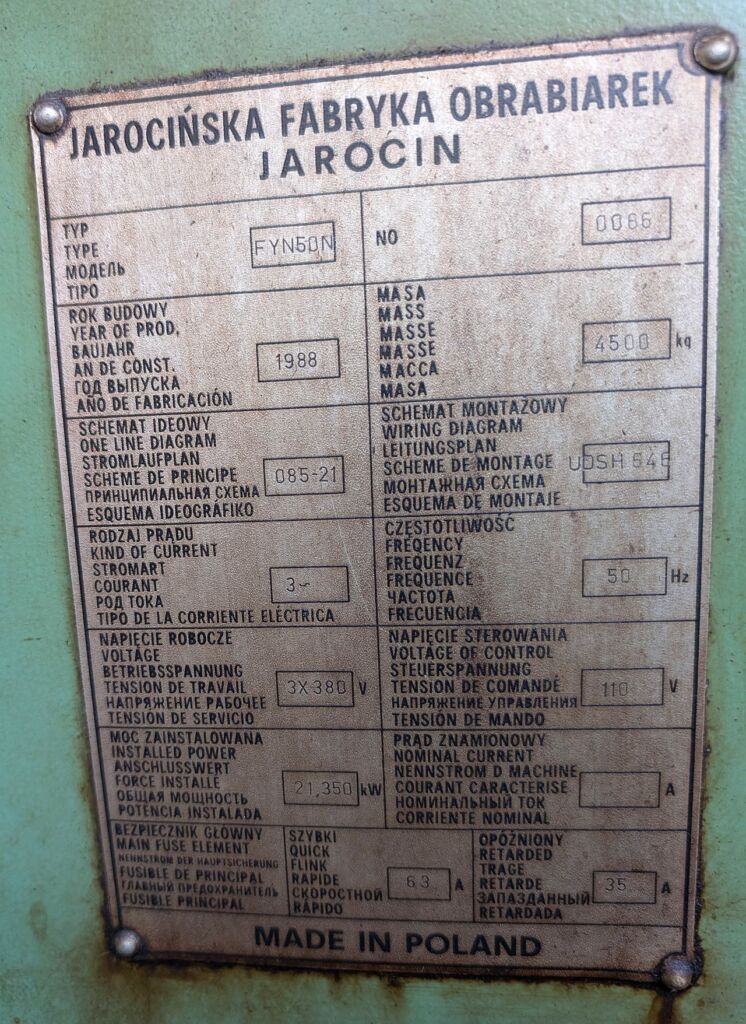 JAROCIŃSKA FABRYKA OBRABIAREK
JAROCIN
TYP
TYPE
МОДЕЛЬ
TIPO
FYN50N
NO
0066
ROK BUDOWY
YEAR OF PROD.
BAUJAHR
AN DE CONST.
ГОД ВЫПУСКА
AÑO DE FABRICACIÓN
1988
MASA
MASS
MASSE
MASSE
МАССА
MASA
4500 kg
SCHEMAT IDEOWY
ONE LINE DIAGRAM
STROMLAUFPLAN
SCHEME DE PRINCIPE
ПРИНЦИПИАЛЬНАЯ СХЕМА
ESQUEMA IDEOGRÁFIKO
085-21
SCHEMAT MONTAŻOWY
WIRING DIAGRAM
LEITUNGSPLAN
SCHEME DE MONTAGE
МОНТАЖНАЯ СХЕМА
ESQUEMA DE MONTAJE
RODZAJ PRĄDU
KIND OF CURRENT
STROMART
COURANT
РОД ТОКА
TIPO DE LA CORRIENTE ELÉCTRICA
3~
CZĘSTOTLIWOŚĆ
FREQENCY
FREQUENZ
FREQUENCE
ЧАСТОТА
FRECUENCIA
50 Hz
NAPIĘCIE ROBOCZE
VOLTAGE
BETRIEBSSPANNUNG
TENSION DE TRAVAIL
НАПРЯЖЕНИЕ РАБОЧЕЕ
TENSIÓN DE SERVICIO
3X380 V
NAPIĘCIE STEROWANIA
VOLTAGE OF CONTROL
STEUERSPANNUNG
TENSION DE COMANDÉ
НАПРЯЖЕНИЕ УПРАВЛЕНИЯ
TENSIÓN DE MANDO
110 V
MOC ZAINSTALOWANA
INSTALLED POWER
ANSCHLUSSWERT
FORCE INSTALLÉ
ОБЩАЯ МОЩНОСТЬ
POTENCIA INSTALADA
21,350 kW
PRĄD ZNAMIONOWY
NOMINAL CURRENT
NENNSTROM D MACHINE
COURANT CARACTERISE
НОМИНАЛЬНЫЙ ТОК
CORRIENTE NOMINAL
A
BEZPIECZNIK GŁÓWNY
MAIN FUSE ELEMENT
NENNSTROM DER HAUPTSICHERUNG
FUSIBLE DE PRINCIPAL
ГЛАВНЫЙ ПРЕДОХРАНИТЕЛЬ
FUSIBLE PRINCIPAL
SZYBKI
QUICK
FLINK
RAPIDE
СКОРОСТНОЙ
RÁPIDO
63 A
OPÓŹNIONY
RETARDED
TRAGE
RETARDE
ЗАПАЗДАННЫЙ
RETARDADA
35 A
MADE IN POLAND